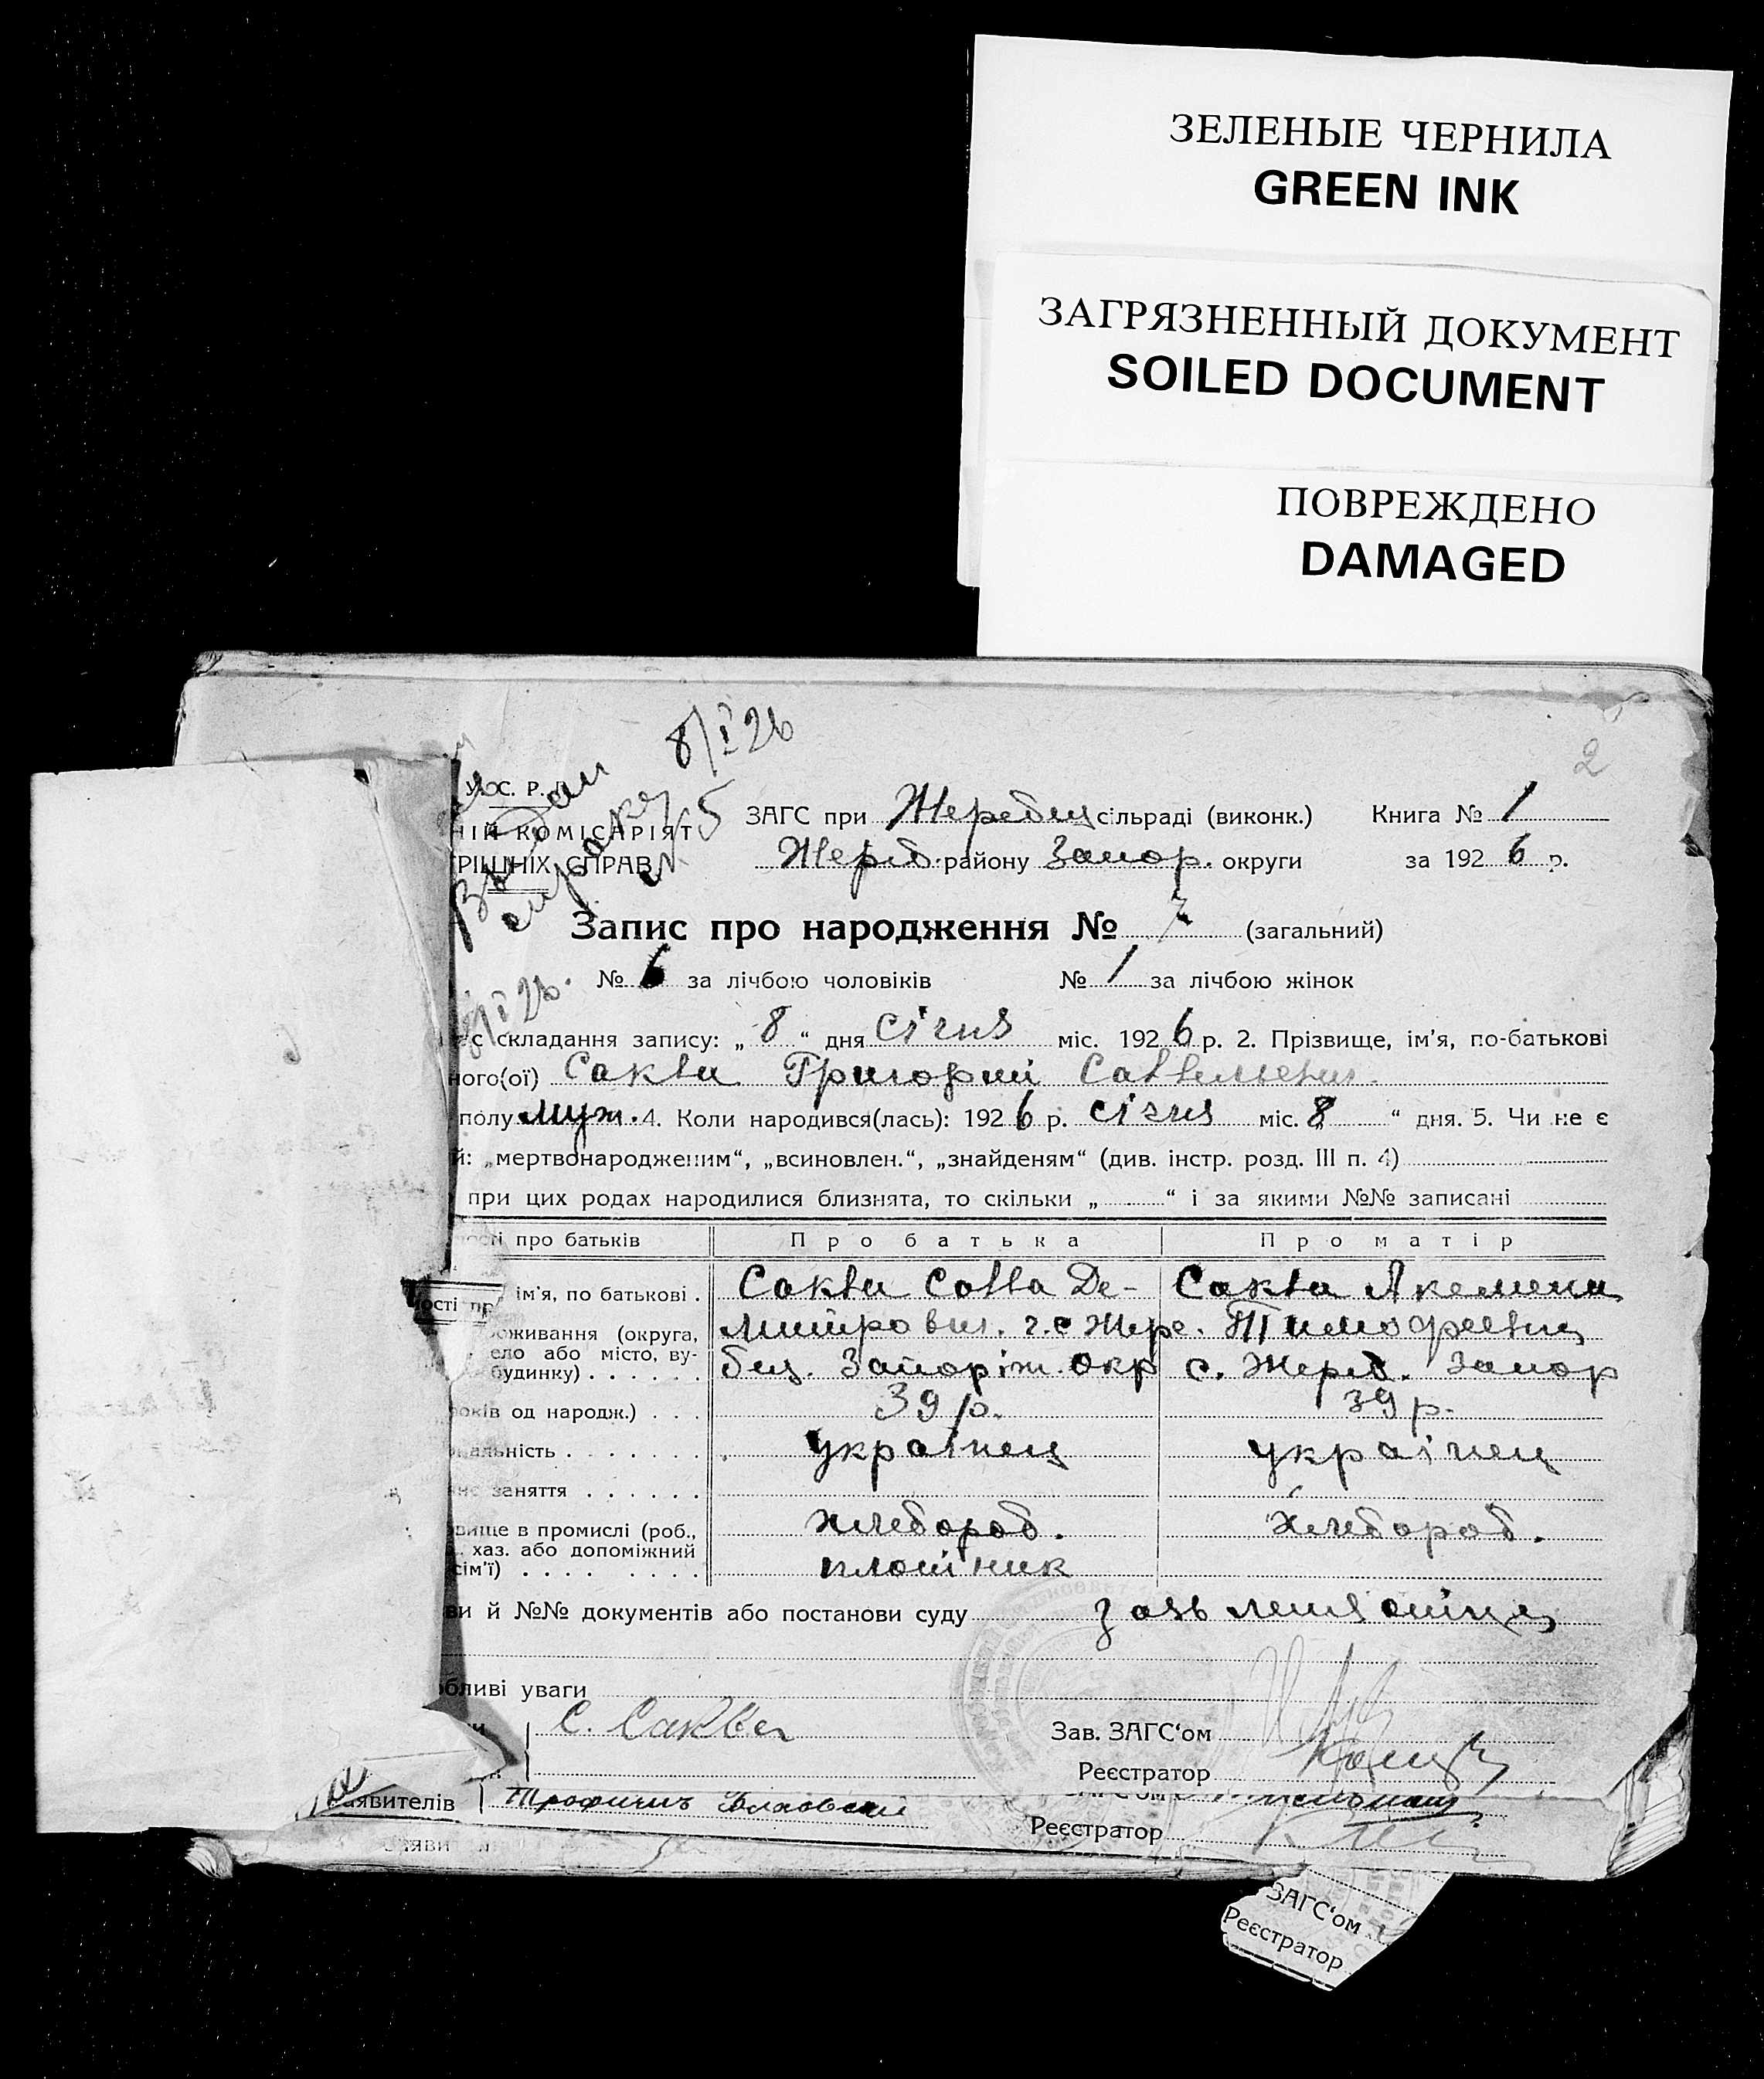 ЗЕЛЕНЫЕ ЧЕРНИЛА
GREEN INK
ЗАГРЯЗНЕННЫЙ ДОКУМЕНТ
SOILED DOCUMENT
ПОВРЕЖДЕНО
DAMAGED
2
8/I 26
У. С. Р. Р.
НІЙ КОМІСАРІЯТ
РІШНІХ СПРАВ
№ 5
ЗАГС при Жеребец сільраді (виконк.) Книга № 1
Жереб. району Запор. округи за 1926 р.
Запис про народження № 7 (загальний)
№ 6 за лічбою чоловіків № 1 за лічбою жінок
с складання запису: „ 8 “ дня січня міс. 1926 р. 2. Прізвище, ім'я, по-батькові
ного(ої) Саква Григорій Саввельевич
полу муж. 4. Коли народився(лась): 1926 р. січня міс. 8 “ дня. 5. Чи не є
й: „мертвонародженим“, „всиновлен.“, „знайденям“ (див. інстр. розд. III п. 4)
при цих родах народилися близнята, то скільки „ “ і за якими №№ записані
ості про батьків Про батька Про матір
ім'я, по батькові . Саква Савва Де- Саква Якемена
оживання (округа, митрович. г. с Жере. Тимофеевна
ело або місто, ву-
будинку) . . . . . . бец. Запоріж. окр с. Жереб. Запор
років од народж.) . . . 39 р. 39 р.
альність . . . . . . . українец українец
заняття . . . . . .
вище в промислі (роб., хлебороб. хлебороб.
хаз. або допоміжний
сім'ї) . . . . . . . . плотник
ви й №№ документів або постанови суду
бливі уваги
С. Саква
Зав. ЗАГС'ом
Реєстратор
аявителів Трофим
Реєстратор
заяви
ЗАГС'ом
Реєстратор